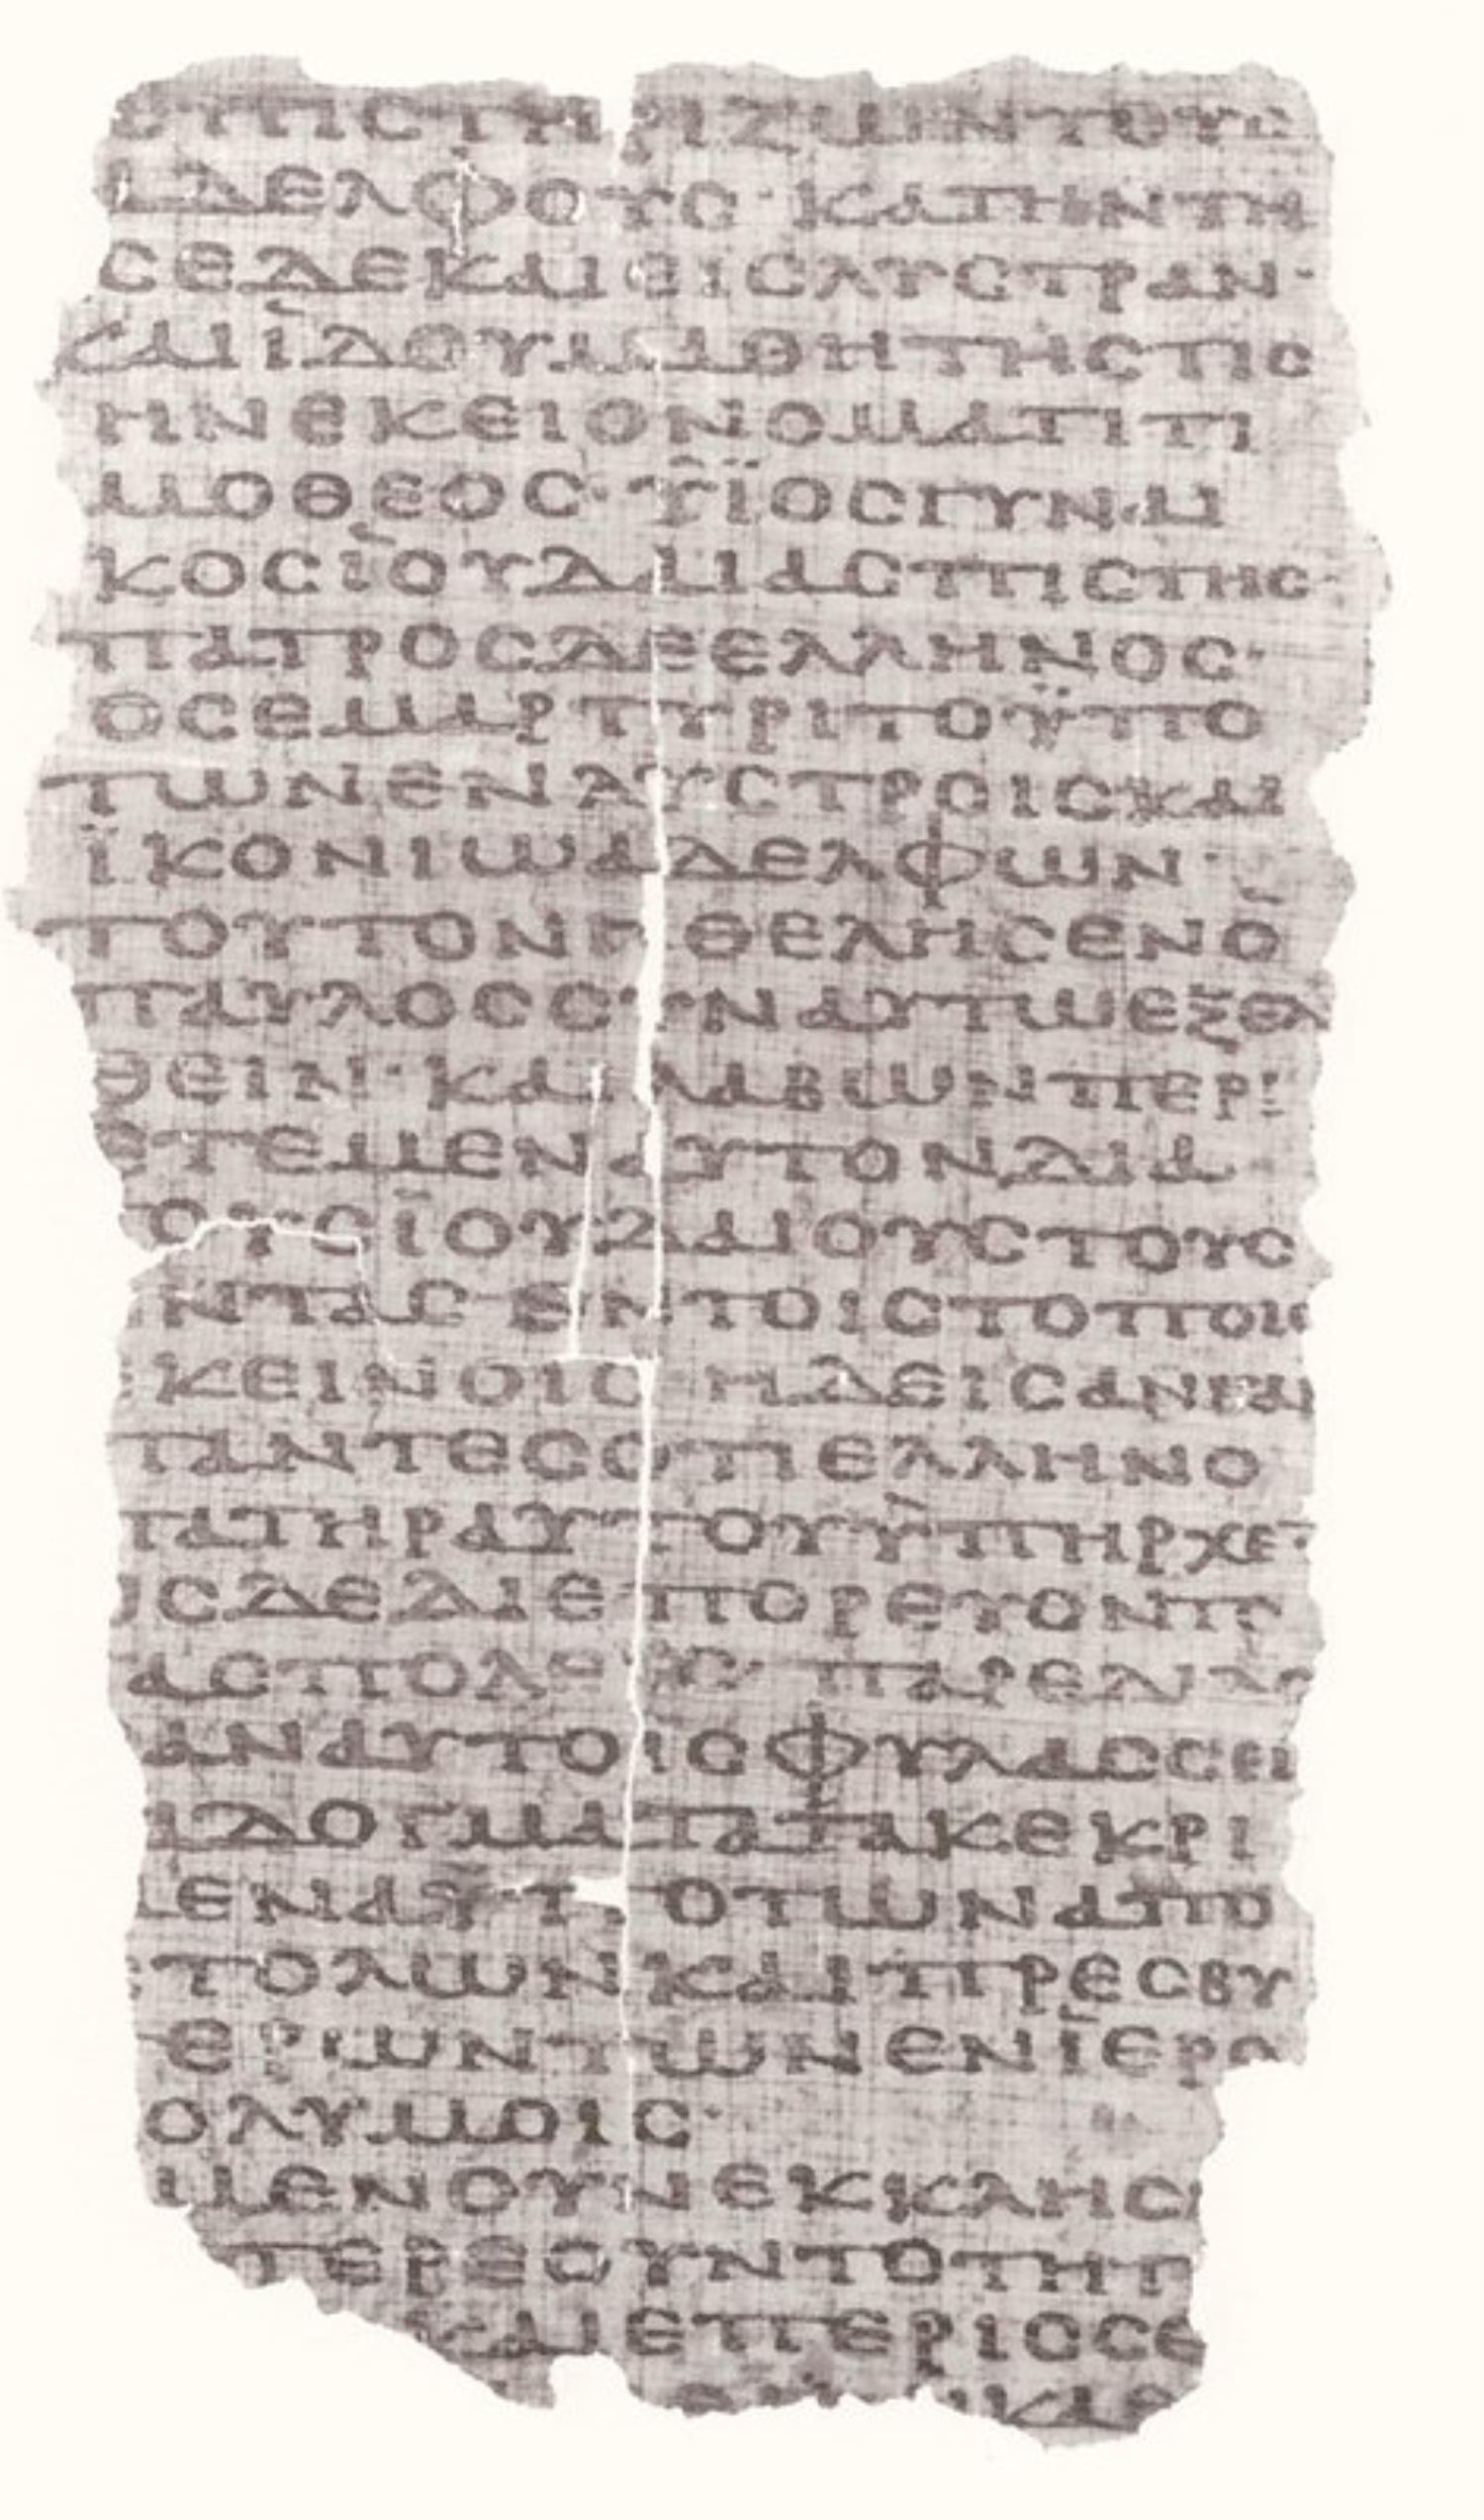 ΕΠΙΣΤΗΡΙΖΩΝΤΟΥΣ
ΑΔΕΛΦΟΥΣ· ΚΑΤΗΝΤΗ
ΣΕΔΕΚΑΙΕΙΣΛΥΣΤΡΑΝ·
ΚΑΙΪΔΟΥΜΑΘΗΤΗΣΤΙΣ
ΗΝΕΚΕΙΟΝΟΜΑΤΙΤΙ
ΜΟΘΕΟΣ· ΥΪΟΣΓΥΝΑΙ
ΚΟΣΪΟΥΔΑΙΑΣΠΙΣΤΗΣ·
ΠΑΤΡΟΣΔΕΕΛΛΗΝΟΣ·
ΟΣΕΜΑΡΤΥΡΙΤΟΫΠΟ
ΤΩΝΕΝΛΥΣΤΡΟΙΣΚΑΙ
ΪΚΟΝΙΩΑΔΕΛΦΩΝ·
ΤΟΥΤΟΝΗΘΕΛΗΣΕΝΟ
ΠΑΥΛΟΣΣΥΝΑΥΤΩΕΞΕΛ
ΘΕΙΝ· ΚΑΙΛΑΒΩΝΠΕΡΙ
ΕΤΕΜΕΝΑΥΤΟΝΔΙΑ
ΟΥΣΪΟΥΔΑΙΟΥΣΤΟΥΣ
ΝΤΑΣ ΕΝΤΟΙΣΤΟΠΟΙΣ
ΕΚΕΙΝΟΙΣ ΗΔΕΙΣΑΝΓΑΡ
ΠΑΝΤΕΣΟΤΙΕΛΛΗΝΟ
ΠΑΤΗΡΑΥΤΟΥΫΠΗΡΧΕ
ΩΣΔΕΔΙΕΠΟΡΕΥΟΝΤΟ
ΑΣΠΟΛΕΙΣ· ΠΑΡΕΔΙΔΟ
ΑΝΑΥΤΟΙΣΦΥΛΑΣΣΕΙ
ΑΔΟΓΜΑΤΑΤΑΚΕΚΡΙ
ΜΕΝΑΫΠΟΤΩΝΑΠΟ
ΣΤΟΛΩΝΚΑΙΠΡΕΣΒΥ
ΕΡΩΝΤΩΝΕΝΪΕΡΟ
ΟΛΥΜΟΙΣ·
ΜΕΝΟΥΝΕΚΚΛΗΣΙ
ΤΕΡΕΟΥΝΤΟΤΗΠ
ΚΑΙΕΠΕΡΙΣΣΕ